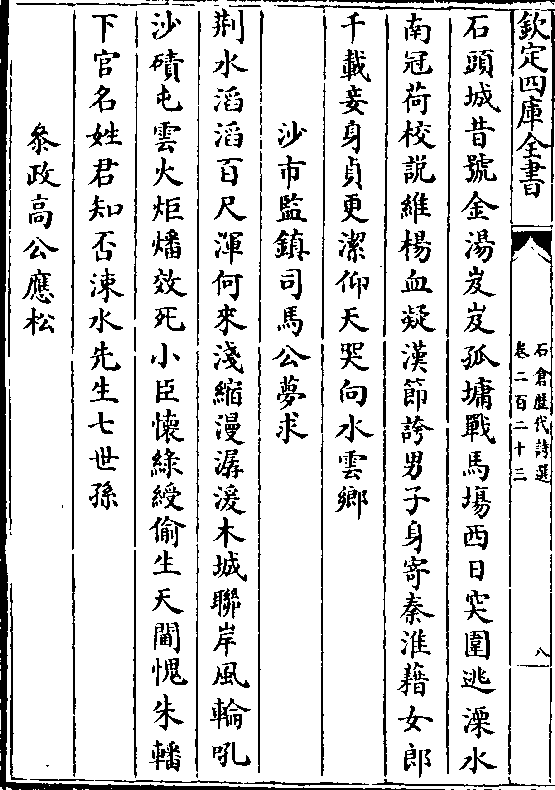 欽定四庫全書
石倉歷代詩選
卷二百二十三
八
石頭城昔號金湯岌岌孤墉戰馬塲西日突圍逃溧水
南冠荷校説維楊血凝漢節誇男子身寄秦淮藉女郎
千載妾身貞更潔仰天哭向水雲鄉
沙市監鎮司馬公夢求
荆水滔滔百尺渾何來淺縮漫潺湲木城聯岸風輪吼
沙磧屯雲火炬燔效死小臣懷緑綬偷生天閫愧朱轓
下官名姓君知否涑水先生七世孫
叅政高公應松